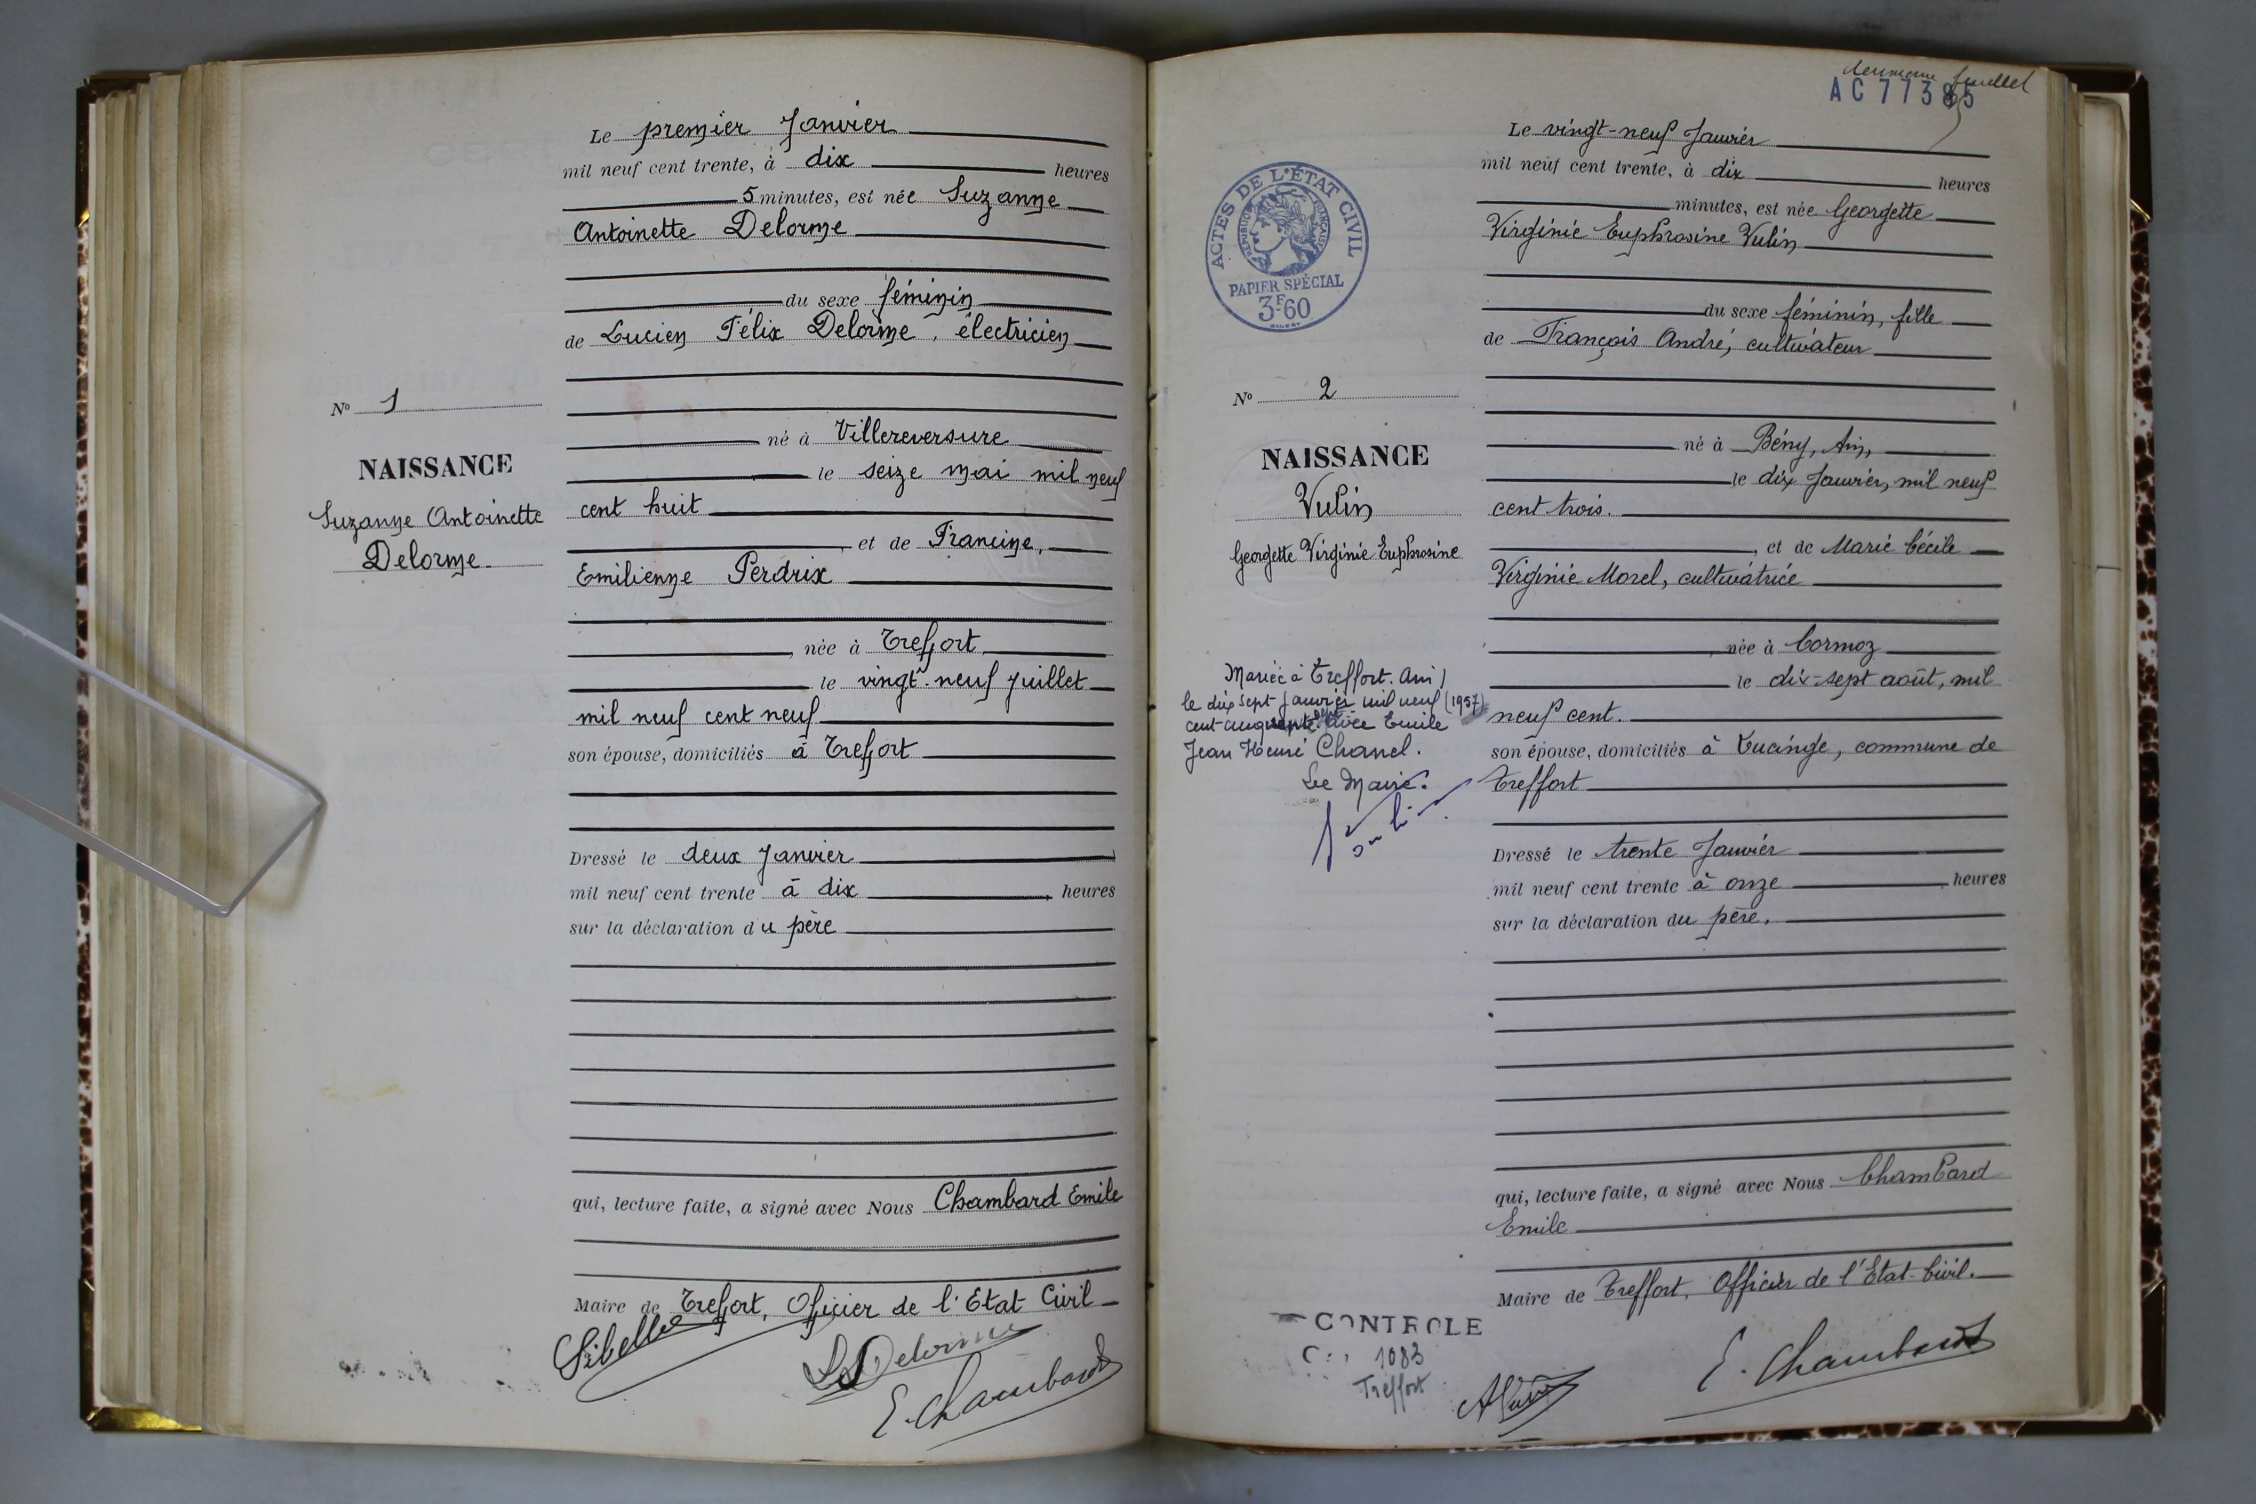 Le premier Janvier
mil neuf cent trente, à dix heures
5 minutes, est née Suzanne
Antoinette Delorme
du sexe féminin
de Lucien Félix Delorme, électricien
né à Villereversure
le seize mai mil neuf
cent huit
et de Francine,
Emilienne Perdrix
, née à Treffort
le vingt-neuf Juillet
mil neuf cent neuf
son épouse, domiciliés à Treffort
Dressé le deux Janvier
mil neuf cent trente à dix, heures
sur la déclaration du père
qui, lecture faite, a signé avec Nous Chambard Emile
Maire de Treffort, Officier de l'Etat Civil
L Delorme
E. Chambard
No 1
NAISSANCE
Suzanne Antoinette
Delorme
deuxième feuillet
AC 77385
Le vingt-neuf Janvier
mil neuf cent trente, à dix heures
minutes, est née Georgette
Virginie Euphrosine Vulin
du sexe féminin, fille
de François André, cultivateur
né à Bény, Ain,
le dix Janvier, mil neuf
cent trois.
, et de Marie Cécile
Virginie Morel, cultivatrice
, née à Cormoz
le dix-sept août, mil
neuf cent.
son épouse, domiciliés à Lucinge, commune de
Treffort
Dressé le trente Janvier
mil neuf cent trente à onze heures
sur la déclaration du père.
qui, lecture faite, a signé avec Nous Chambard
Emile
Maire de Treffort, Officier de l'Etat-Civil.
E. Chambard
ACTES DE L'ÉTAT CIVIL
RÉPUBLIQUE FRANÇAISE
PAPIER SPÉCIAL
3F60
No 2
NAISSANCE
Vulin
Georgette Virginie Euphrosine
Mariée à Treffort. Ain)
le dix sept Janvier mil neuf (1957)
cent cinquante sept avec Emile
Jean Henri Chanel.
Le Maire.
CONTROLE
1083
Treffort